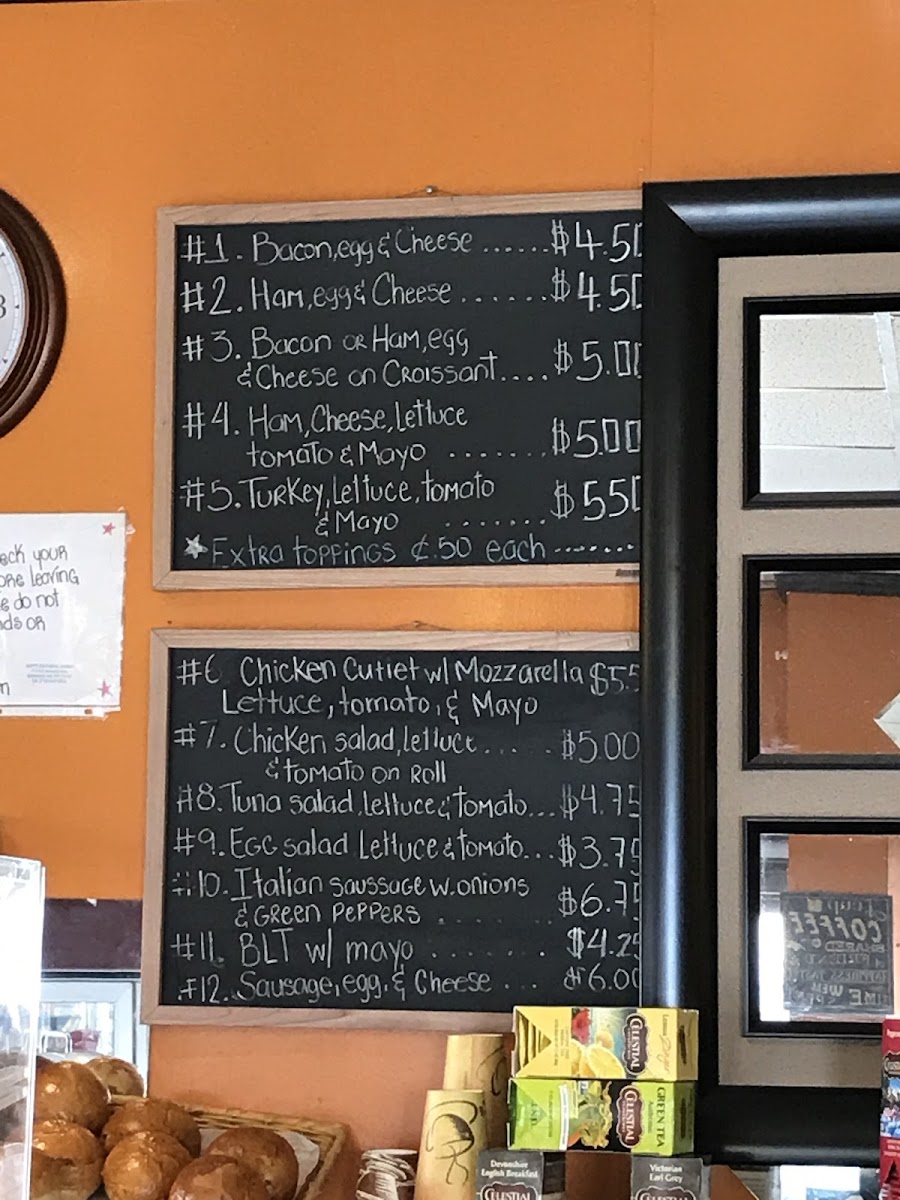 #1. Bacon, egg & Cheese ...... $4.50
#2. Ham, egg & Cheese ....... $4.50
#3. Bacon OR Ham, egg
& Cheese on Croissant.... $5.00
#4. Ham, Cheese, Lettuce
tomato & Mayo ....... $5.00
#5. Turkey, Lettuce, tomato $550
& Mayo .......
Extra toppings ¢.50 each -------
#6 Chicken Cutlet w/ Mozzarella $5.5
Lettuce, tomato, & Mayo
#7. Chicken salad, lettuce.... $5.00
& tomato on Roll
#8. Tuna salad, lettuce & tomato... $4.75
#9. Egg salad Lettuce & tomato... $3.75
#10. Italian saussage w. onions
& Green Peppers . . . . $6.75
#11. BLT w/ mayo ....... $4.25
#12. Sausage, egg, & Cheese ... $6.00
eck your
ore leaving
e do not
ds or
m
3
CELESTIAL
GREEN TEA
CELESTIAL
Devonshire
English Breakfast
CELESTIAL
Victorian
Earl Grey
CELESTIAL
COFFEE